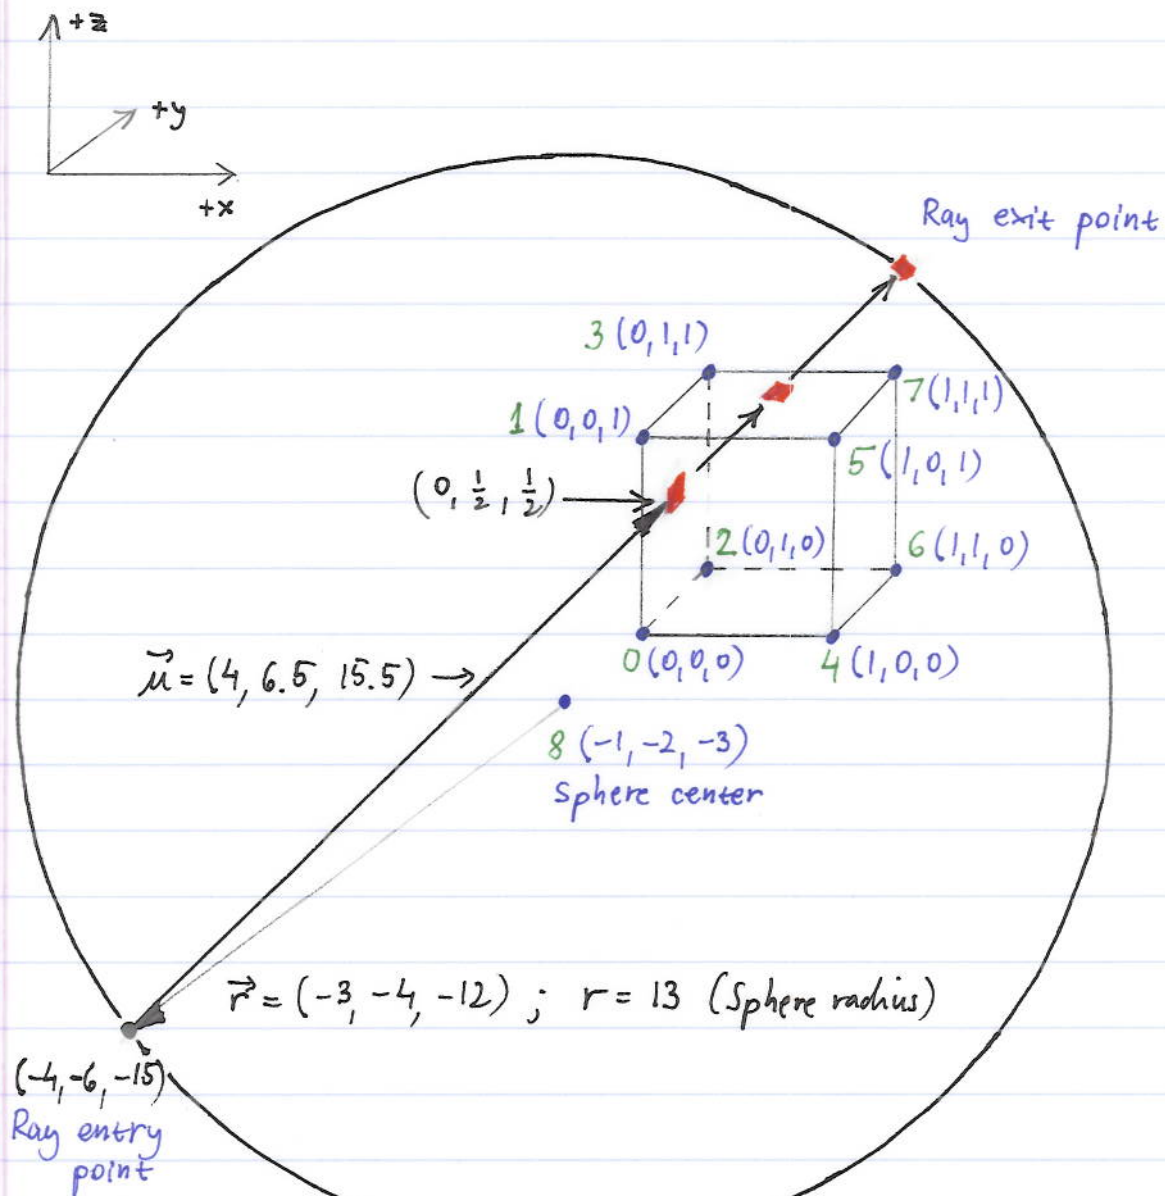 +z
+y
+x
Ray exit point
3 (0,1,1)
7 (1,1,1)
1 (0,0,1)
5 (1,0,1)
(0, 1/2, 1/2)
2 (0,1,0)
6 (1,1,0)
0 (0,0,0)
4 (1,0,0)
μ⃗ = (4, 6.5, 15.5)
8 (-1, -2, -3)
Sphere center
r⃗ = (-3, -4, -12) ; r = 13 (Sphere radius)
(-4, -6, -15)
Ray entry
point